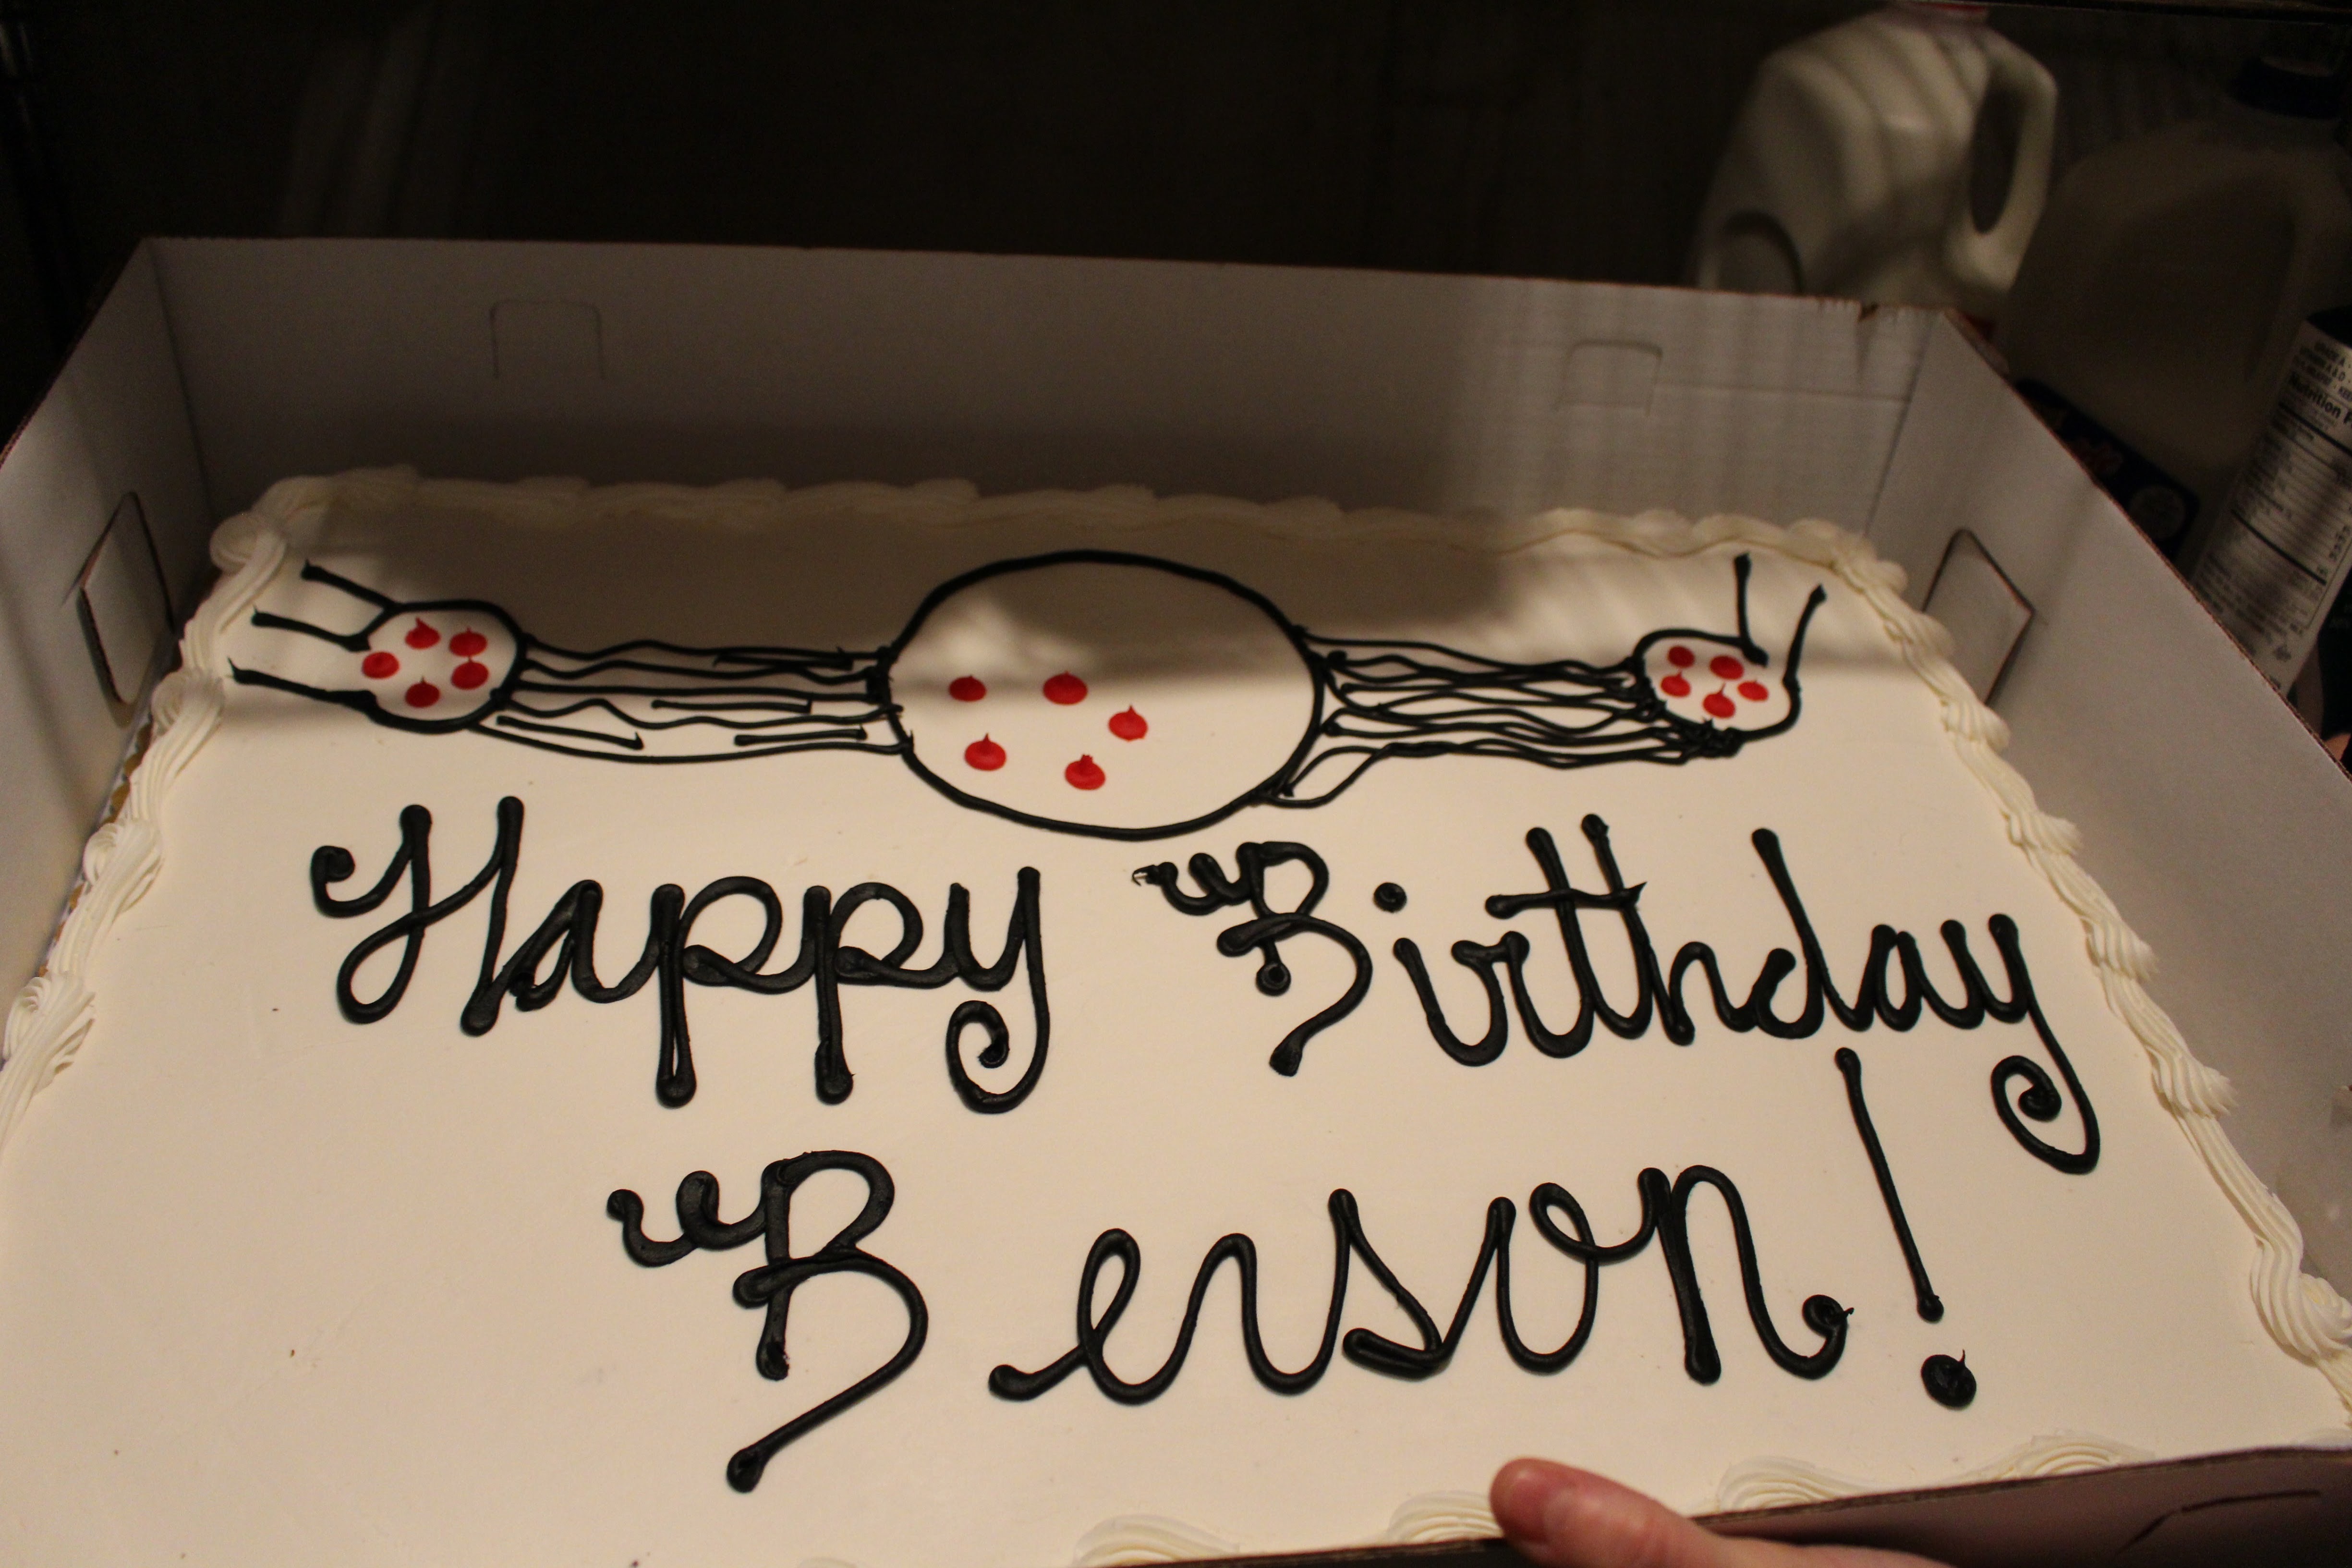 Happy Birthday
Berson!
Nutrition